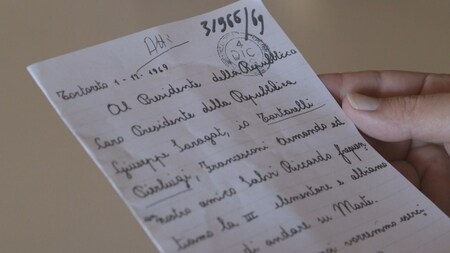 Atti
31966/69
4 DIC
Tortoreto 1-12-1969
Al Presidente della Repubblica
Caro Presidente della Repubblica
Giuseppe Saragat, io Tortorelli
Pierluigi, Francesconi Armando ed
nostro amico Salvi Riccardo
la III elementare e abbiamo
di andare su Marte.
vorremmo